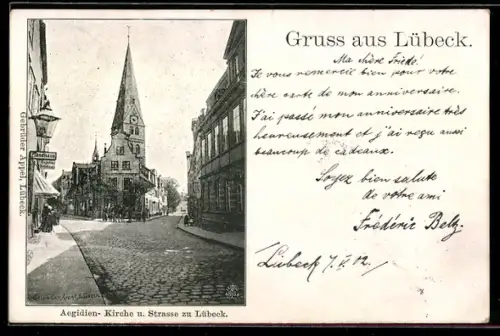 Gruss aus Lübeck.
Ma chère Friede!
Je vous remercie bien pour votre
chère carte de mon anniversaire.
J'ai passé mon anniversaire très
heureusement et j'ai reçu aussi
beaucoup de cadeaux.
Soyez bien salute
de votre ami
Frédéric Belz.
Lübeck 7. V. 02.
Gebrüder Appel, Lübeck.
Aegidien- Kirche u. Strasse zu Lübeck.